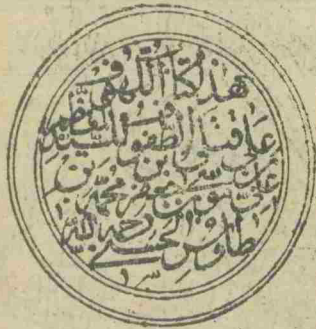 هذا كتاب اللهوف
على قتلى الطفوف للسيد
علي بن موسى بن
جعفر بن محمد بن
طاوس الحسيني رحمه الله